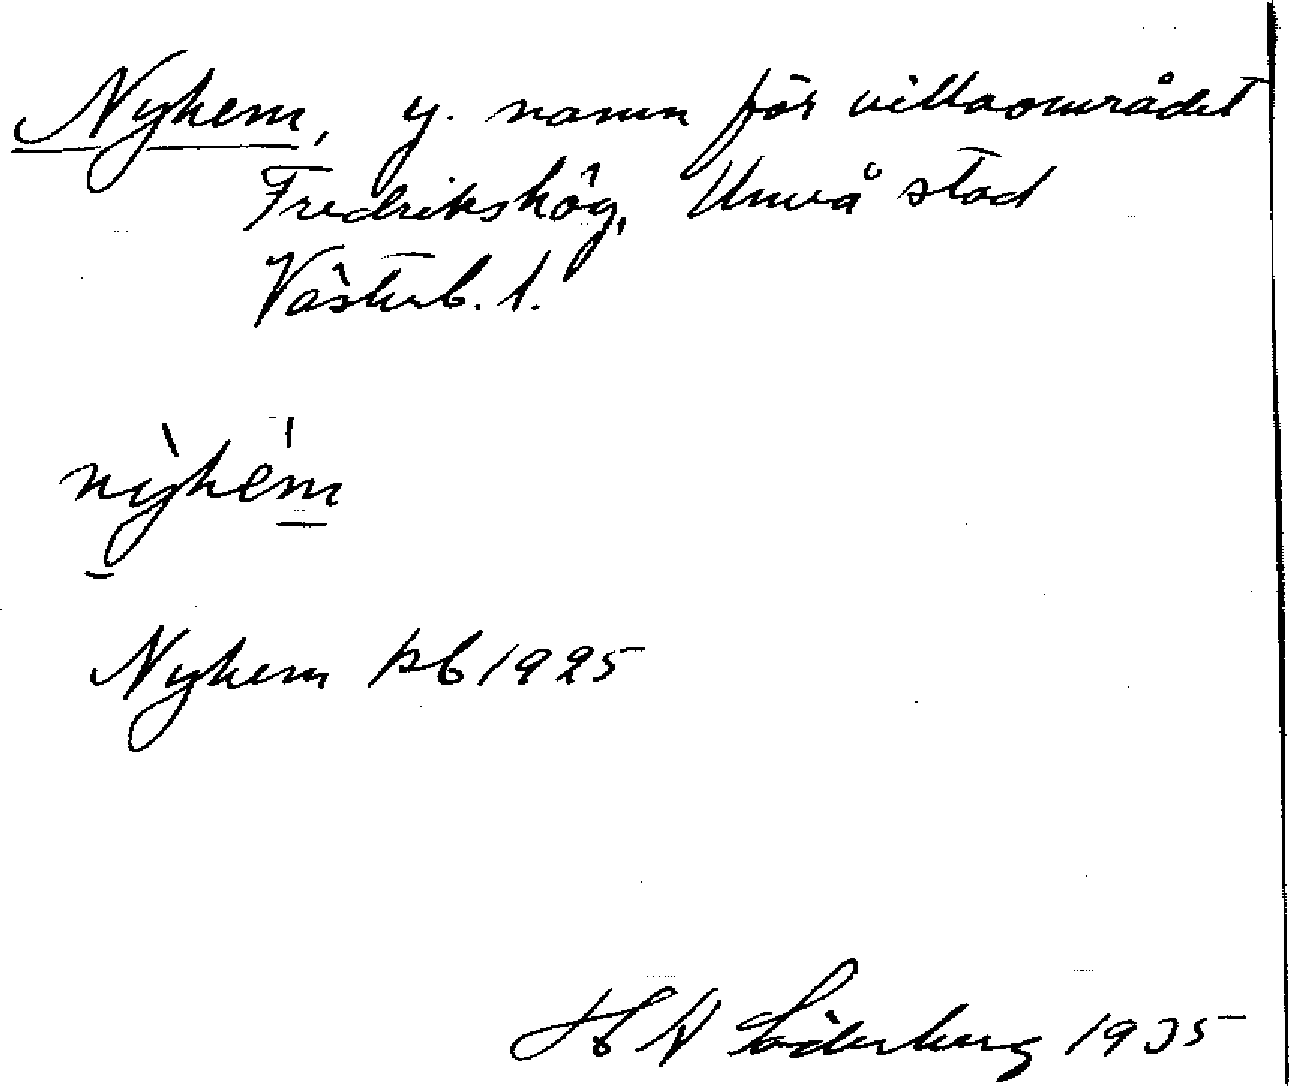 Nyhem, y. namn för villaområdet
Fredrikshög, Umeå stad
Västerb. l.
nỳhém
Nyhem kb 1925
H A Söderberg 1935